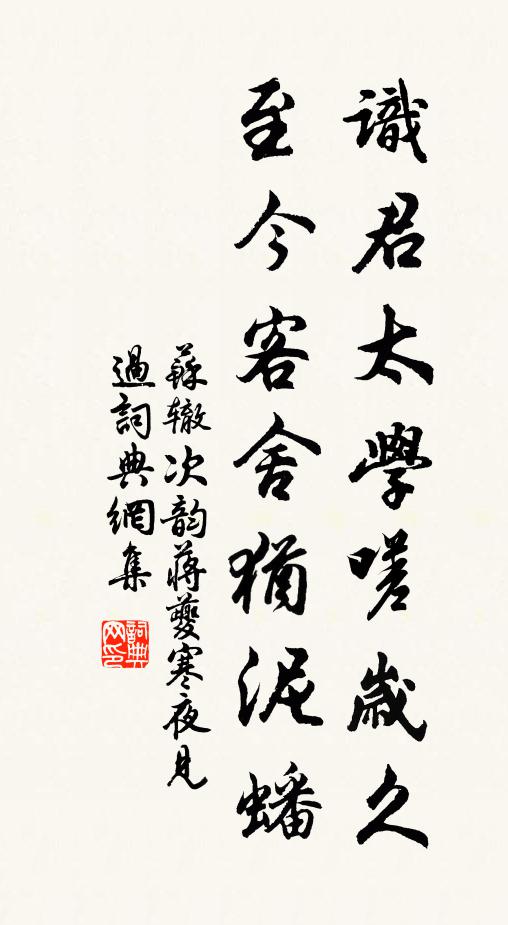 識君太學嗟歲久
至今客舍猶泥蟠
蘇辙次韵蔣夔寒夜見
過詞典網集
詞典
网印